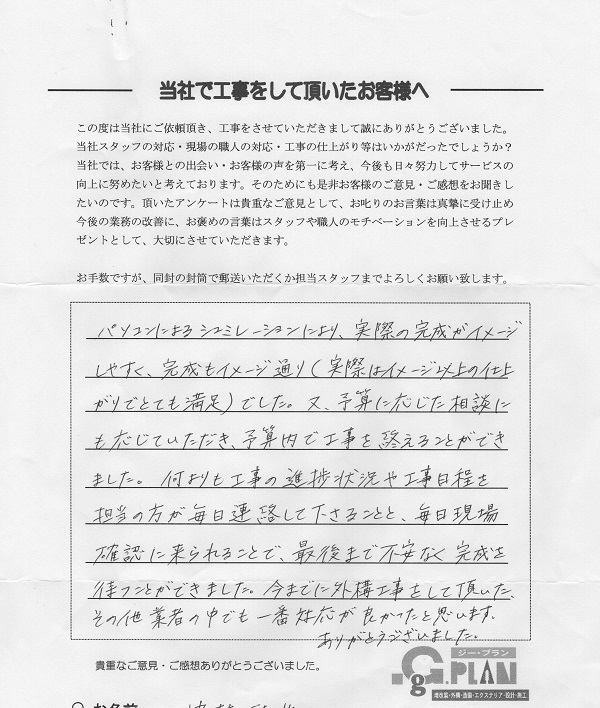 当社で工事をして頂いたお客様へ
この度は当社にご依頼頂き、工事をさせていただきまして誠にありがとうございました。
当社スタッフの対応・現場の職人の対応・工事の仕上がり等はいかがだったでしょうか？
当社では、お客様との出会い・お客様の声を第一に考え、今後も日々努力してサービスの
向上に努めたいと考えております。そのためにも是非お客様のご意見・ご感想をお聞きし
たいのです。頂いたアンケートは貴重なご意見として、お叱りのお言葉は真摯に受け止め
今後の業務の改善に、お褒めの言葉はスタッフや職人のモチベーションを向上させるプレ
ゼントとして、大切にさせていただきます。
お手数ですが、同封の封筒で郵送いただくか担当スタッフまでよろしくお願い致します。
パソコンによるシュミレーションにより、実際の完成がイメージ
しやすく、完成もイメージ通り(実際はイメージ以上の仕上
がりでとても満足)でした。又、予算に応じた相談に
も応じていただき、予算内で工事を終えることができ
ました。何よりも工事の進捗状況や工事日程を
担当の方が毎日連絡して下さることと、毎日現場
確認に来られることで、最後まで不安なく完成を
待つことができました。今までに外構工事をして頂いた、
その他業者の中でも一番対応が良かったと思います。
ありがとうございました。
貴重なご意見・ご感想ありがとうございました。
ジー・プラン
g.PLAN
増改築・外構・造園・エクステリア・設計・施工
お名前